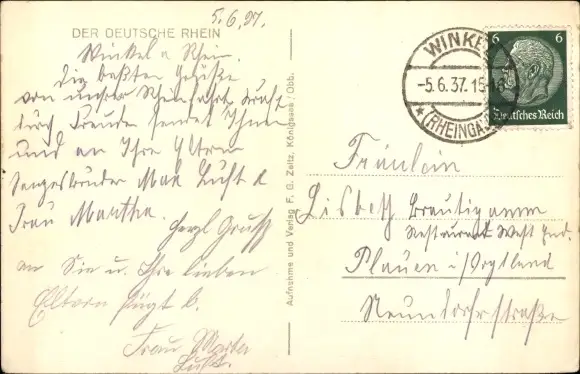 5.6.37.
DER DEUTSCHE RHEIN
Winkel a Rhein.
Die besten Grüße
von unsrer Rheinfahrt Kraft
durch Freude sendet Ihnen
und an Ihre Eltern
Sangesbruder Max Luft &
Frau Martha.
Herzl Gruß
an Sie u. Ihre lieben
Eltern fügt b.
Frau Marta
Luft.
Aufnahme und Verlag F. G. Zeitz, Königssee / Obb.
WINKEL
-5.6.37.15-16
(RHEINGAU)
6 6
Deutsches Reich
Fräulein
Lisbeth Bräutigamm
Restaurant West End.
Plauen i/Vogtland
Neundorferstraße